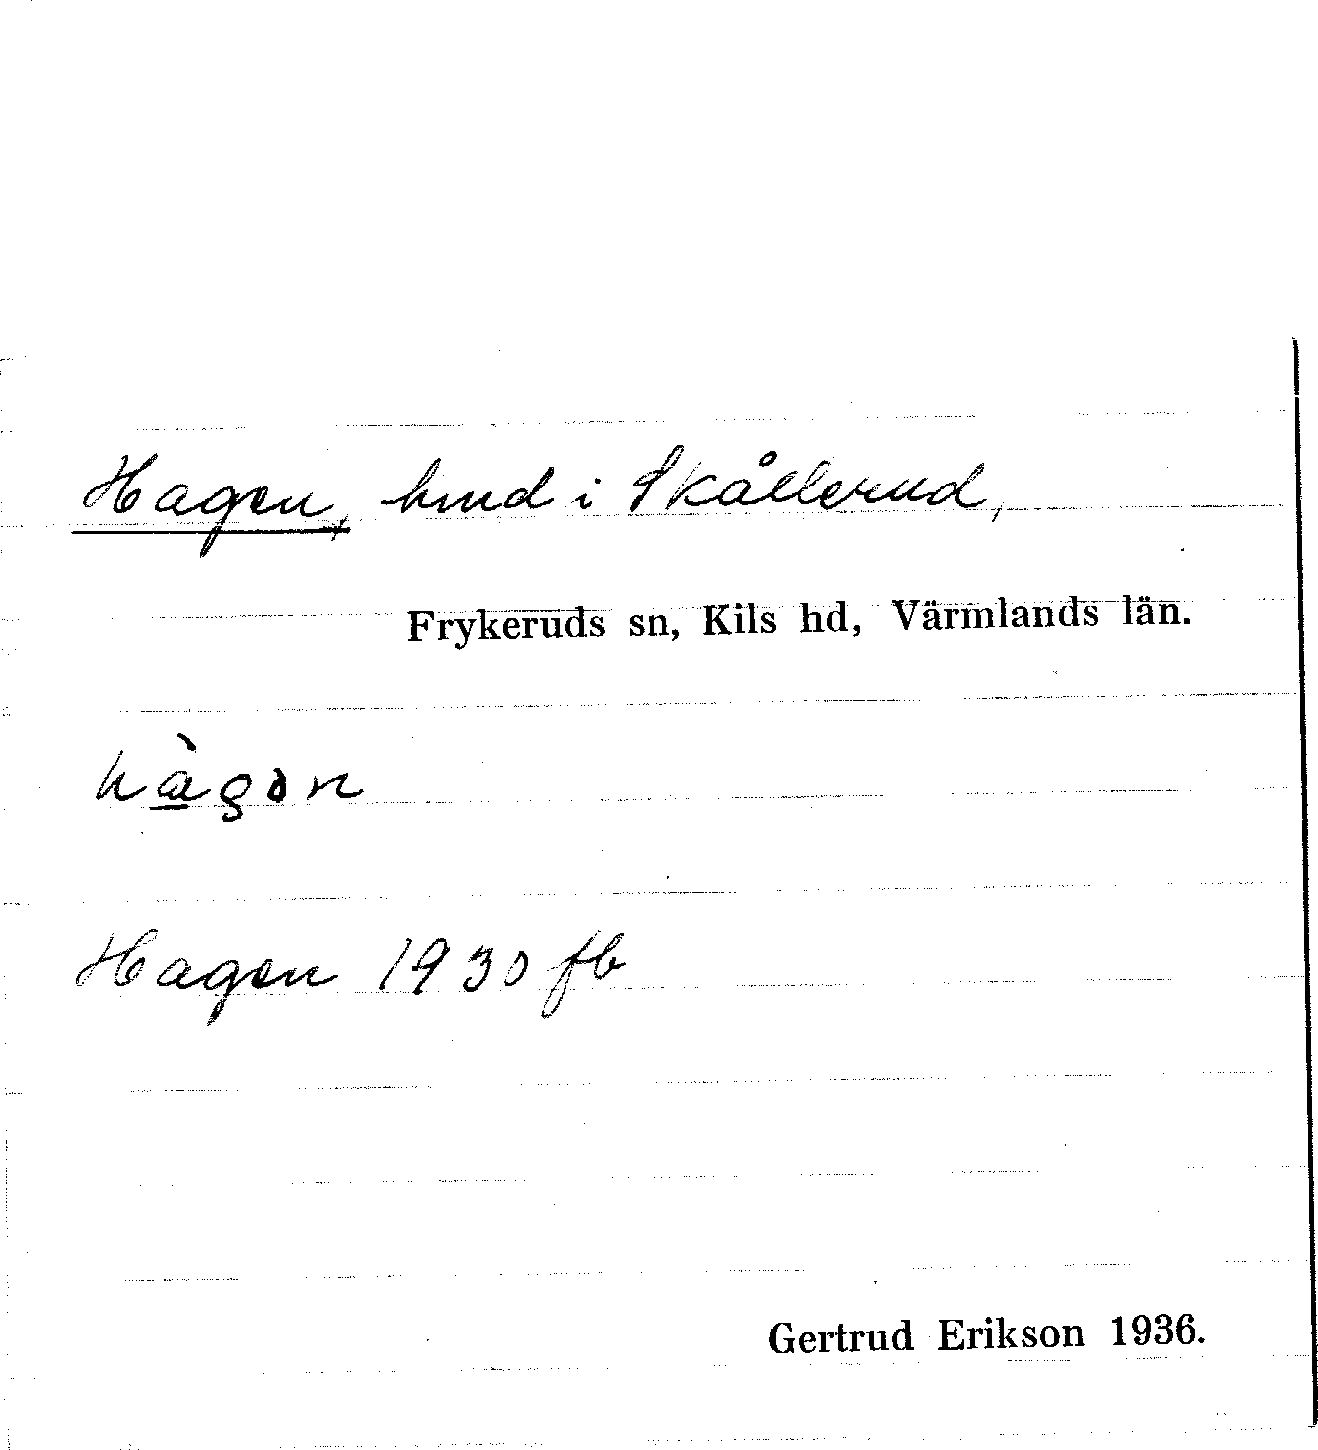 Hagen, hmd i Skållerud,
Frykeruds sn, Kils hd, Värmlands län.
hàgɔn
Hagen 1930 fb
Gertrud Erikson 1936.